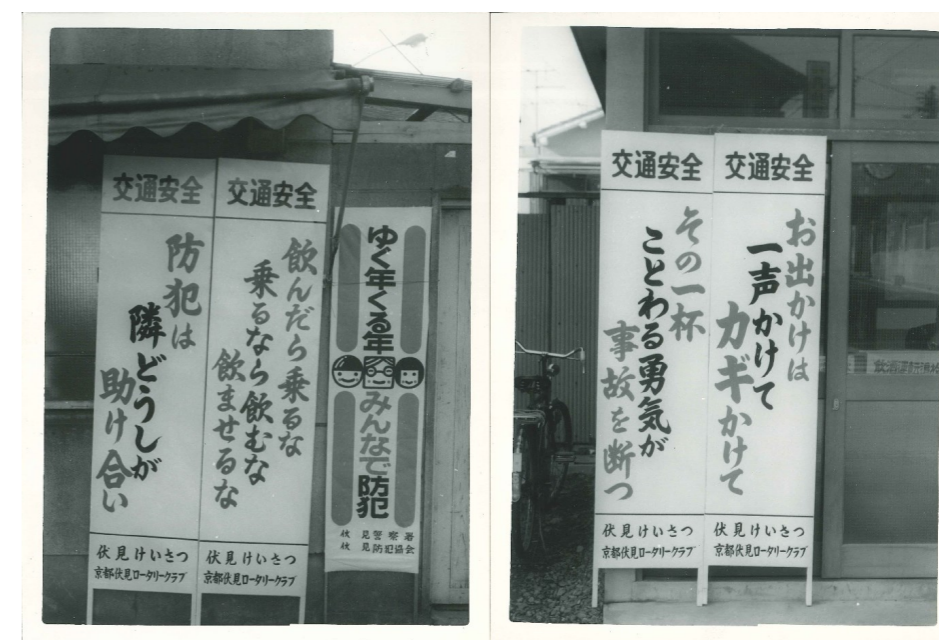 交通安全
防犯は
隣どうしが
助け合い
伏見けいさつ
京都伏見ロータリークラブ
交通安全
飲んだら乗るな
乗るなら飲むな
飲ませるな
伏見けいさつ
京都伏見ロータリークラブ
ゆく年くる年
みんなで防犯
伏見警察署
伏見防犯協会
交通安全
その一杯
ことわる勇気が
事故を断つ
伏見けいさつ
京都伏見ロータリークラブ
交通安全
お出かけは
一声かけて
カギかけて
伏見けいさつ
京都伏見ロータリークラブ